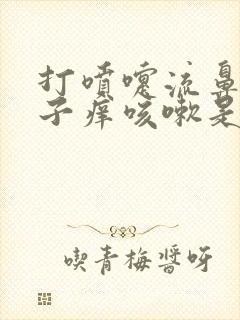 打噴嚏流鼻
子痒咳嗽是
喫青梅醬呀